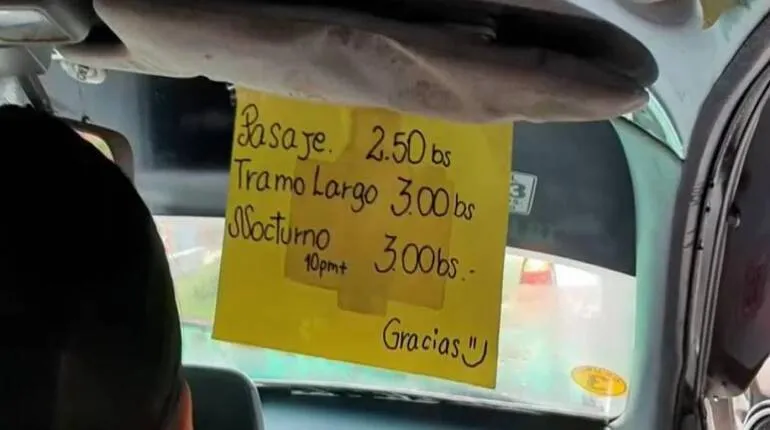 Pasaje. 2.50 bs
Tramo Largo 3.00 bs
Nocturno 3.00 bs.-
10pm+
Gracias
3
3